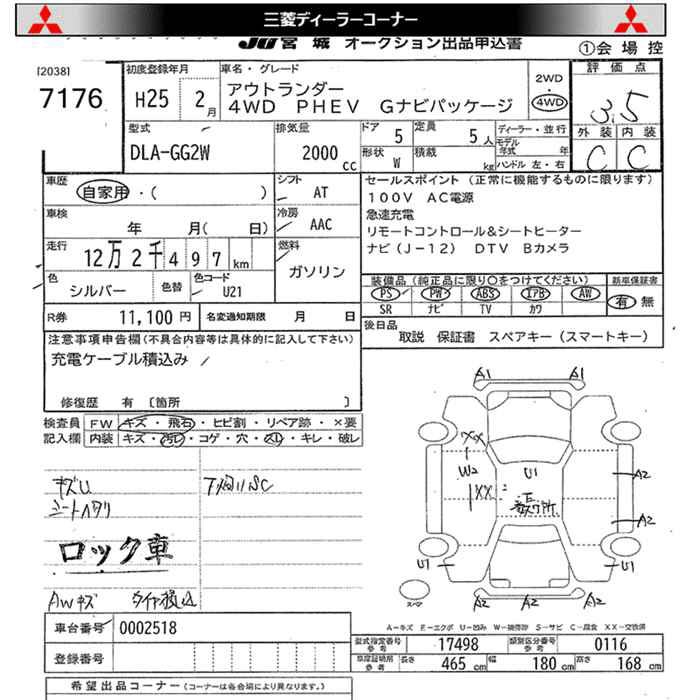 三菱ディーラーコーナー
JU宮城 オークション出品申込書
①会場控
[2038]
7176
初度登録年月
H25 2月
車名・グレード
アウトランダー
4WD PHEV Gナビパッケージ
2WD
・
4WD
評価点
3.5
外装 内装
C C
型式
DLA-GG2W
排気量
2000 cc
ドア 5
定員 5人
形状 W
積載 kg
ディーラー・並行
モデル年式 年
ハンドル 左・右
車歴
自家用・( )
シフト AT
車検
年 月( 日)
冷房 AAC
走行
12万2千497km
燃料 ガソリン
色 シルバー 色替
色コード U21
R券 11,100円
名変通知期限 月 日
セールスポイント (正常に機能するものに限ります)
100V AC電源
急速充電
リモートコントロール&シートヒーター
ナビ(J-12) DTV Bカメラ
装備品(純正品に限り○をつけてください)
PS PW ABS エアB AW
SR ナビ TV カワ
新車保証書
有 無
後日品
取説 保証書 スペアキー(スマートキー)
注意事項申告欄(不具合内容等は具体的に記入して下さい)
充電ケーブル積込み
修復歴 有 〔箇所 〕
検査員記入欄
FW キズ・飛石・ヒビ割・リペア跡・×要
内装 キズ・汚レ・コゲ・穴・スレ・キレ・破レ
キズU
シートヘタリ
ロック車
AWキズ タイヤ積込
下廻りSC
A1 A1
XX
W2
U1
XX
A2
A2
U1 U1
A2 A2
スペア
A-キズ E-エクボ U-凹み W-補修跡 S-サビ C-腐食 XX-交換済
車台番号 0002518
登録番号
型式指定番号 参考 17498
類別区分番号 参考 0116
車庫証明用 参考 長さ 465cm 幅 180cm 高さ 168cm
希望出品コーナー(コーナーは各会場により異なります。)